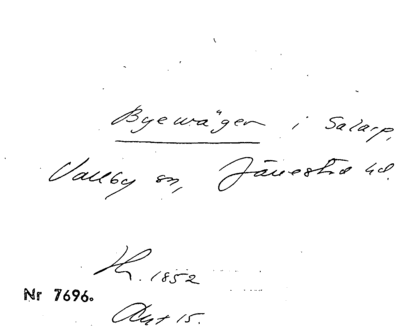 Byewägen i Salarp,
Vallby sn, Järrestad hd.
Hr. 1852
Nr 7696.
Akt 15.